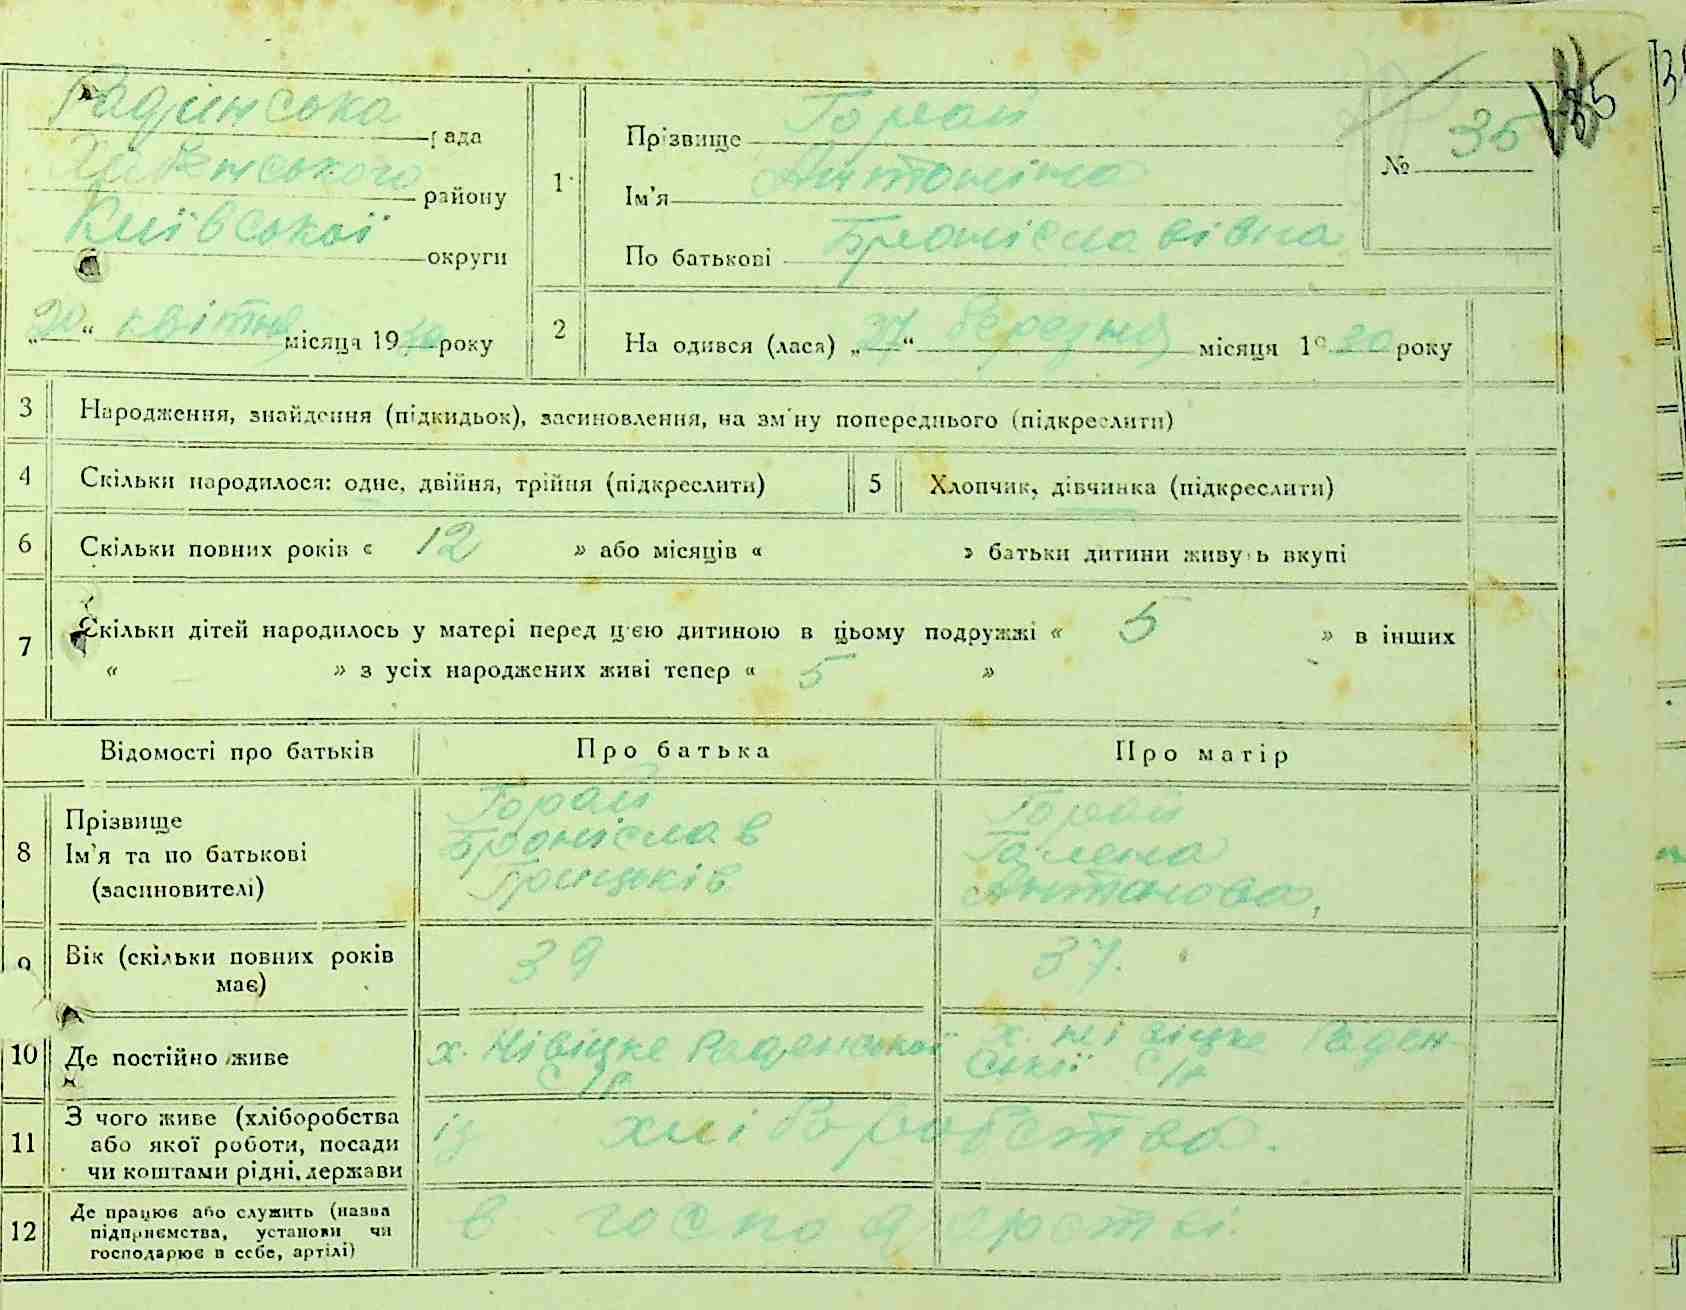 Радинська рада
району
Київської округи
„20“ квітня місяця 1930 року
1
Прізвище Горай
Ім'я Антоніна
По батькові Броніславівна
№ 35
35
2
На одився (лася) „27“ березня місяця 19 30 року
3 Народження, знайдення (підкидьок), засиновлення, на зм'ну попереднього (підкреслити)
4 Скільки народилося: одне, двійня, трійня (підкреслити)
5 Хлопчик, дівчинка (підкреслити)
6 Скільки повних років « 12 » або місяців « » батьки дитини живу ь вкупі
7 Скільки дітей народилось у матері перед цією дитиною в цьому подружжі « 5 » в інших
« » з усіх народжених живі тепер « 5 »
Відомості про батьків Про батька Про матір
8
Прізвище
Ім'я та по батькові
(засиновителі)
Горай
Броніслав
Грицьків
Горай
Галена
Антанова,
9 Вік (скільки повних років має) 39 37.
10 Де постійно живе
х. Нівіцке Раденської
С/р
х. Нівіцке Раден-
ської С/р
11
З чого живе (хліборобства
або якої роботи, посади
чи коштами рідні, держави
із хліборобства.
12
Де працює або служить (назва
підприємства, установи чи
господарює в себе, артілі)
в господарстві.